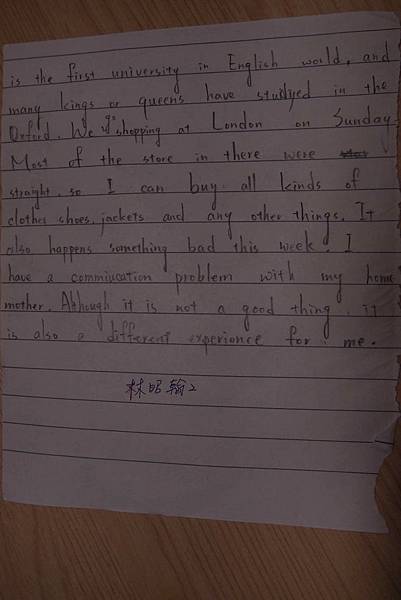 is the first university in English world, and
many kings or queens have studyed in the
Oxford. We go shopping at London on Sunday.
Most of the store in there were
straight, so I can buy all kinds of
clothes, shoes, jackets and any other things. It
also happens something bad this week. I
have a commiucation problem with my home
mother. Although it is not a good thing, it
is also a different experience for me.
林昭翰2